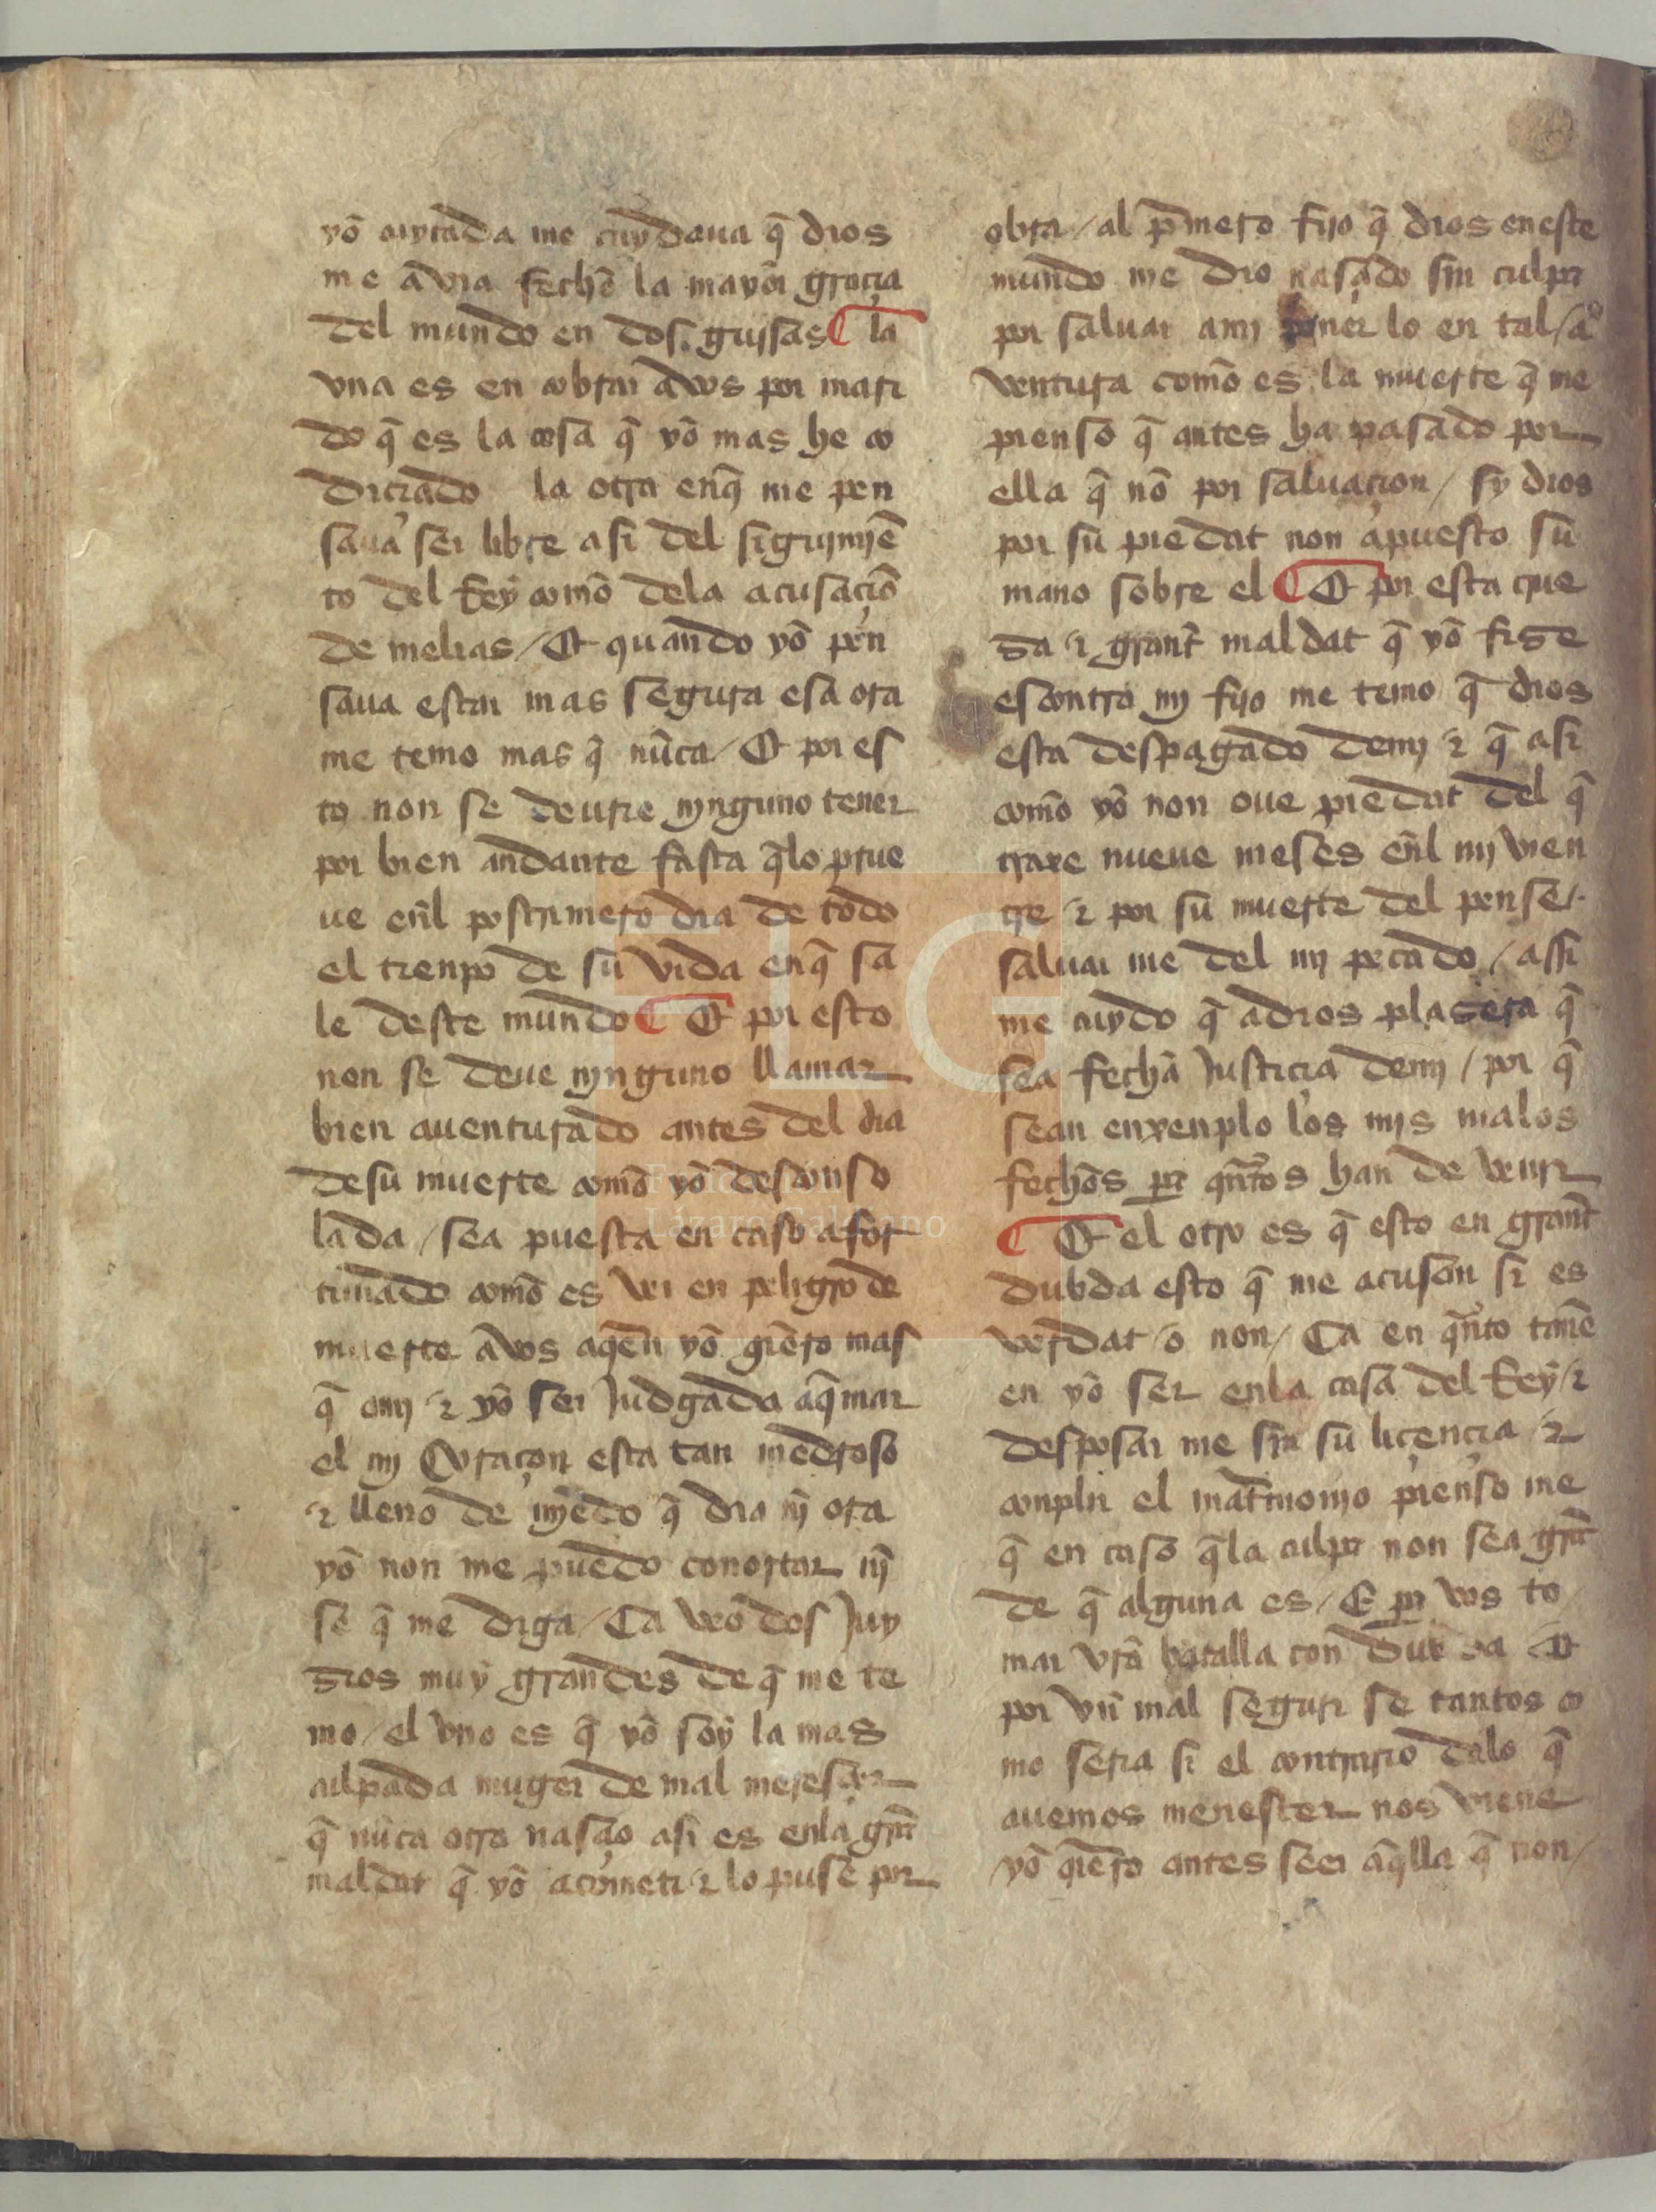 yõ cuytada me cuydaua q̃ dios
me avia fecho la mayor graçia
del mundo en dos guisas ¶ la
vna es en cobrar a vos por mari
do q̃ es la cosa q̃ yõ mas he co
diciado la otra enq̃ me pen
saua ser libre asi del siguimjẽ
to del Rey comõ dela acusaçiõ
de melias / Et quando yõ pen
saua estar mas segura esa ora
me temo mas q̃ nũca / Et por es
to non se deurie njnguno tener
por bien andante fasta q̃lo prue
ue enl̃ postrimero dia de todo
el tienpo de su vida enq̃ sa
le deste mundo ¶ Et por esto
non se deue njnguno llamar
bien auenturado antes del dia
desu muerte comõ yõ desconso
lada / sea puesta en caso afor
tunado comõ es ver en peligro de
muerte a vos aqẽn yõ qiẽro mas
q̃ a mj ⁊ yõ ser Judgada aq̃mar
el mj Coraçon esta tan medroso
⁊ lleno de mjedo q̃ dia nj̃ ora
yõ non me puedo conortar nj̃
se q̃ me diga / Ca veo dos Juy
zios muy grandes de q̃ me te
mo / el vno es q̃ yõ soy la mas
culpada muger de mal meresçer
q̃ nũca otra nasçio asi es enla grãt
maldat q̃ yõ acometi ⁊ lo puse por
obra / al p̃mero fijo q̃ dios eneste
mundo me dio nasçido sin culpa
por saluar amj poner lo en tal / a
ventura comõ es la muerte q̃ me
pienso q̃ antes ha pasado por
ella q̃ nõ por saluaçion / sy dios
por su piedat non a puesto su
mano sobre el ¶ Et por esta crue
za ⁊ grant maldat q̃ yõ fise
escontra mj fijo me temo q̃ dios
esta despagado demj ⁊ q̃ asi
comõ yõ non oue piedat del q̃
traxe nueue meses enl̃ mj vien
tre ⁊ por su muerte del pense /
saluar me del mj pecado / assi
me cuydo q̃ adios plasera q̃
sea fecha Justicia demj / por q̃
sean enxenplo los mis malos
fechos pa qñtos han de venir
¶ Et el otro es q̃ esto en grant
dubda esto q̃ me acusan si es
verdat o non / Ca en qñto tañe
en yõ ser enla casa del Rey / ⁊
desposar me sin su liçençia / ⁊
conplir el mat̃monjo pienso me
q̃ en caso q̃la culpa non sea grã
de q̃ alguna es / E pa vos to
mar vr̃a batalla con dubda Et
por vn mal seguir se tantos co
mo seria si el contrario delo q̃
auemos menester nos viene
yõ qiẽro antes seer aq̃lla q̃ non /
FLG
Fundación
Lázaro Galdiano